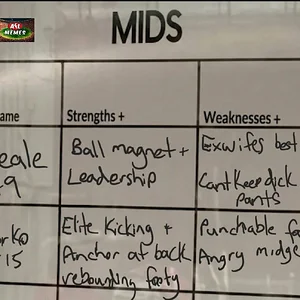 AFL
MEMES
MIDS
ame
Strengths +
Weaknesses +
eale
9
Ball magnet +
Leadership
Exwifes best
Cant Keep dick
pants
15
Elite Kicking +
Anchor at back
rebounding footy
Punchable fa
Angry midge